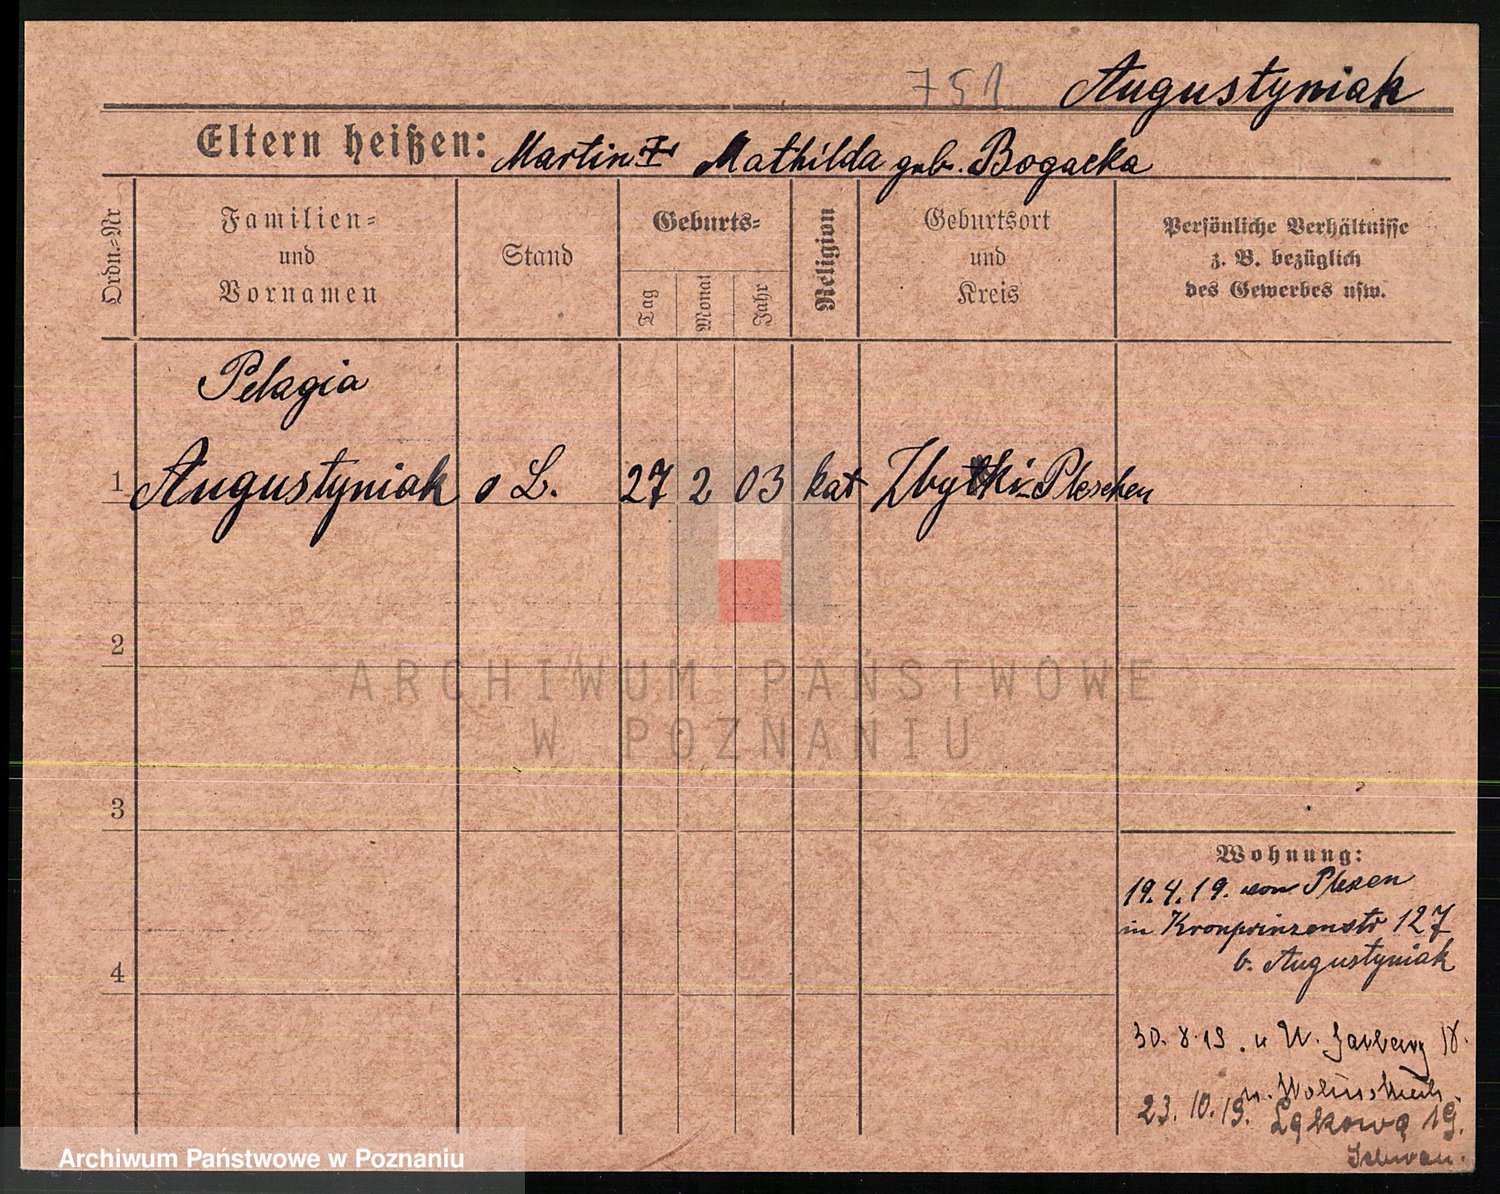 751 Augustyniak
Eltern heißen: Martin Mathilda geb. Bogacka
Ordn.=Nr
Familien=
und
Vornamen
Stand
Geburts=
Tag
Monat
Jahr
Religion
Geburtsort
und
Kreis
Persönliche Verhältnisse
z. B. bezüglich
des Gewerbes usw.
Pelagia
1 Augustyniak o L. 27 2 03 kat Zbytki-Pleschen
2
ARCHIWUM PAŃSTWOWE
W POZNANIU
3
Wohnung:
19.4.19. von Plesen
in Kronprinzenstr 127
b. Augustyniak
4
30.8.19. n W.
23.10.19. Łąkową 19.
Archiwum Państwowe w Poznaniu